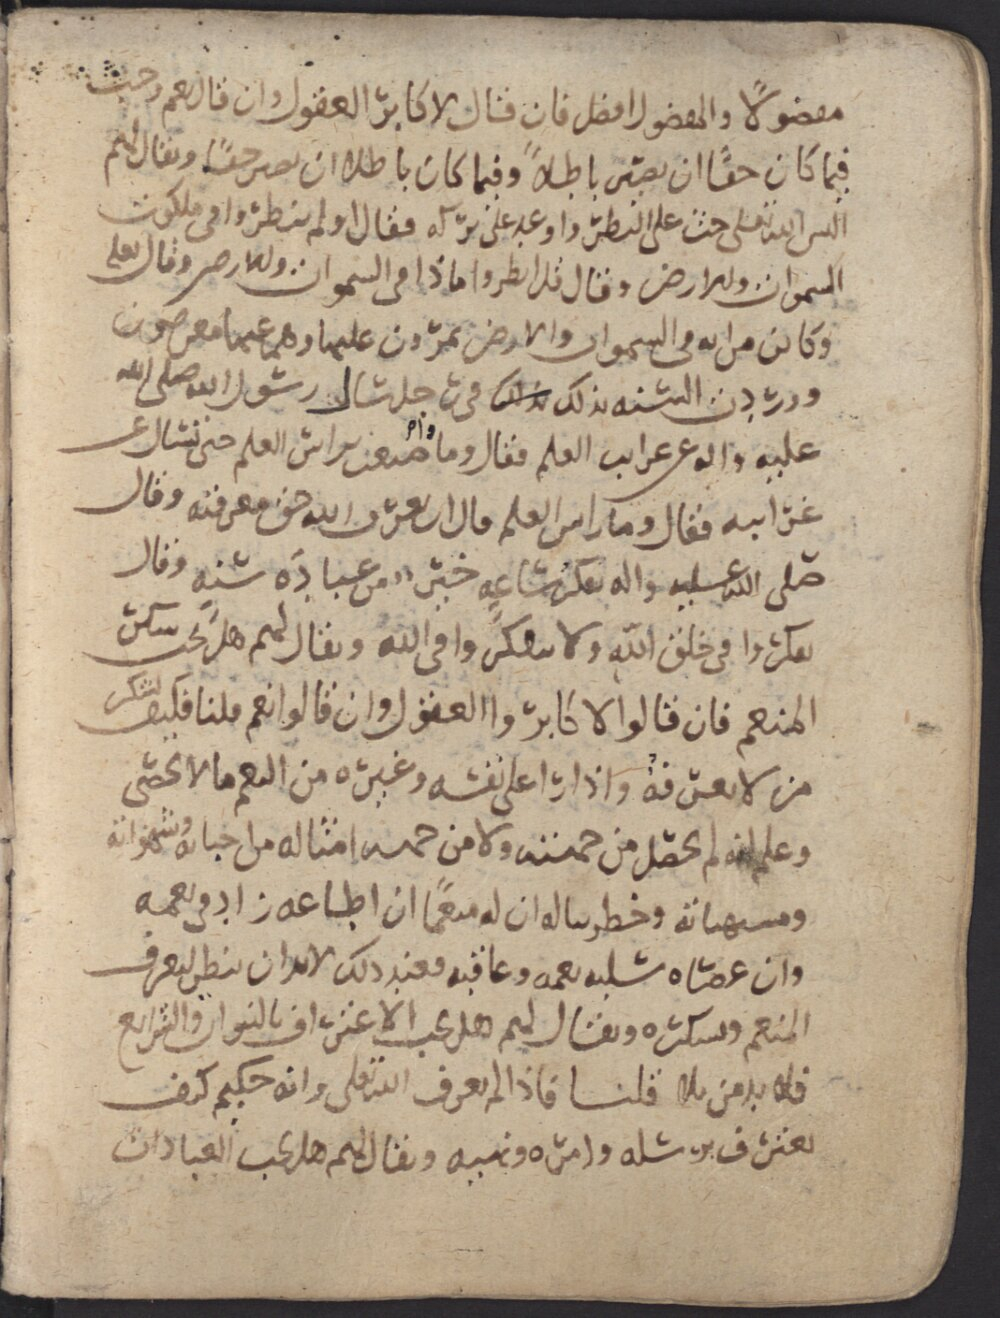 مفضولاً والمفضول افضل فان قال لا كابر العقول وان قال نعم وجب
فيما كان حقاً ان يصير باطلاً وفيما كان باطلا ان يصير حقاً ويقال لهم
اليس الله تعلى حث على النظر واوعد على تركه فقال اولم ينظروا في ملكوت
السموات والارض وقال قل انظروا ماذا في السموات والارض وقال تعلى
وكاين من ايه في السموات والارض يمرون عليها وهم عنها معرضون
ووردت السنه بذلك في رجل سال رسول الله صلى الله
عليه واله عن غرايب العلم فقال وما ذا صنعت براس العلم حتى تسال عن
غرايبه فقال وما راس العلم قال ان تعرف الله حق معرفته وقال
صلى الله عليه واله تفكر ساعه خير من عباده سنه وقال
تفكروا في خلق الله ولا تتفكروا في الله ويقال لهم هل يجب شكر
المنعم فان قالوا لا كابروا العقول وان قالوا نعم قلنا فكيف يشكر
من لا يعرفه واذا راا على نفسه وغيره من النعم ما لا يحصى
وعلم انه لم يحصل من جهته ولا من جهه امثاله من حياته وشهواته
ومشتهياته وخطر بباله ان له منعماً ان اطاعه زاد في نعمه
وان عصاه سلبه نعمه وعاقبه فعند ذلك لا بد ان ينظر ليعرف
المنعم ويشكره ويقال لهم هل يجب الاعتراف بالنبوات والشرايع
فلا بد من بلا قلنا فاذا لم يعرف الله تعلى وانه حكيم كيف
يعترف برسله وامره ونهيه ويقال لهم هل يجب العبادات